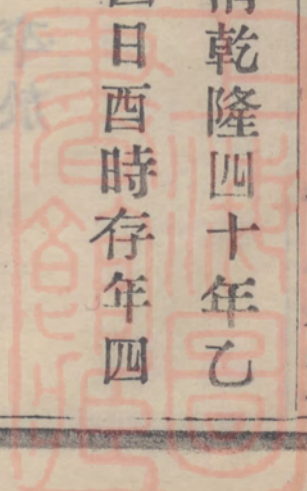 乾隆四十年乙
日酉時存年四